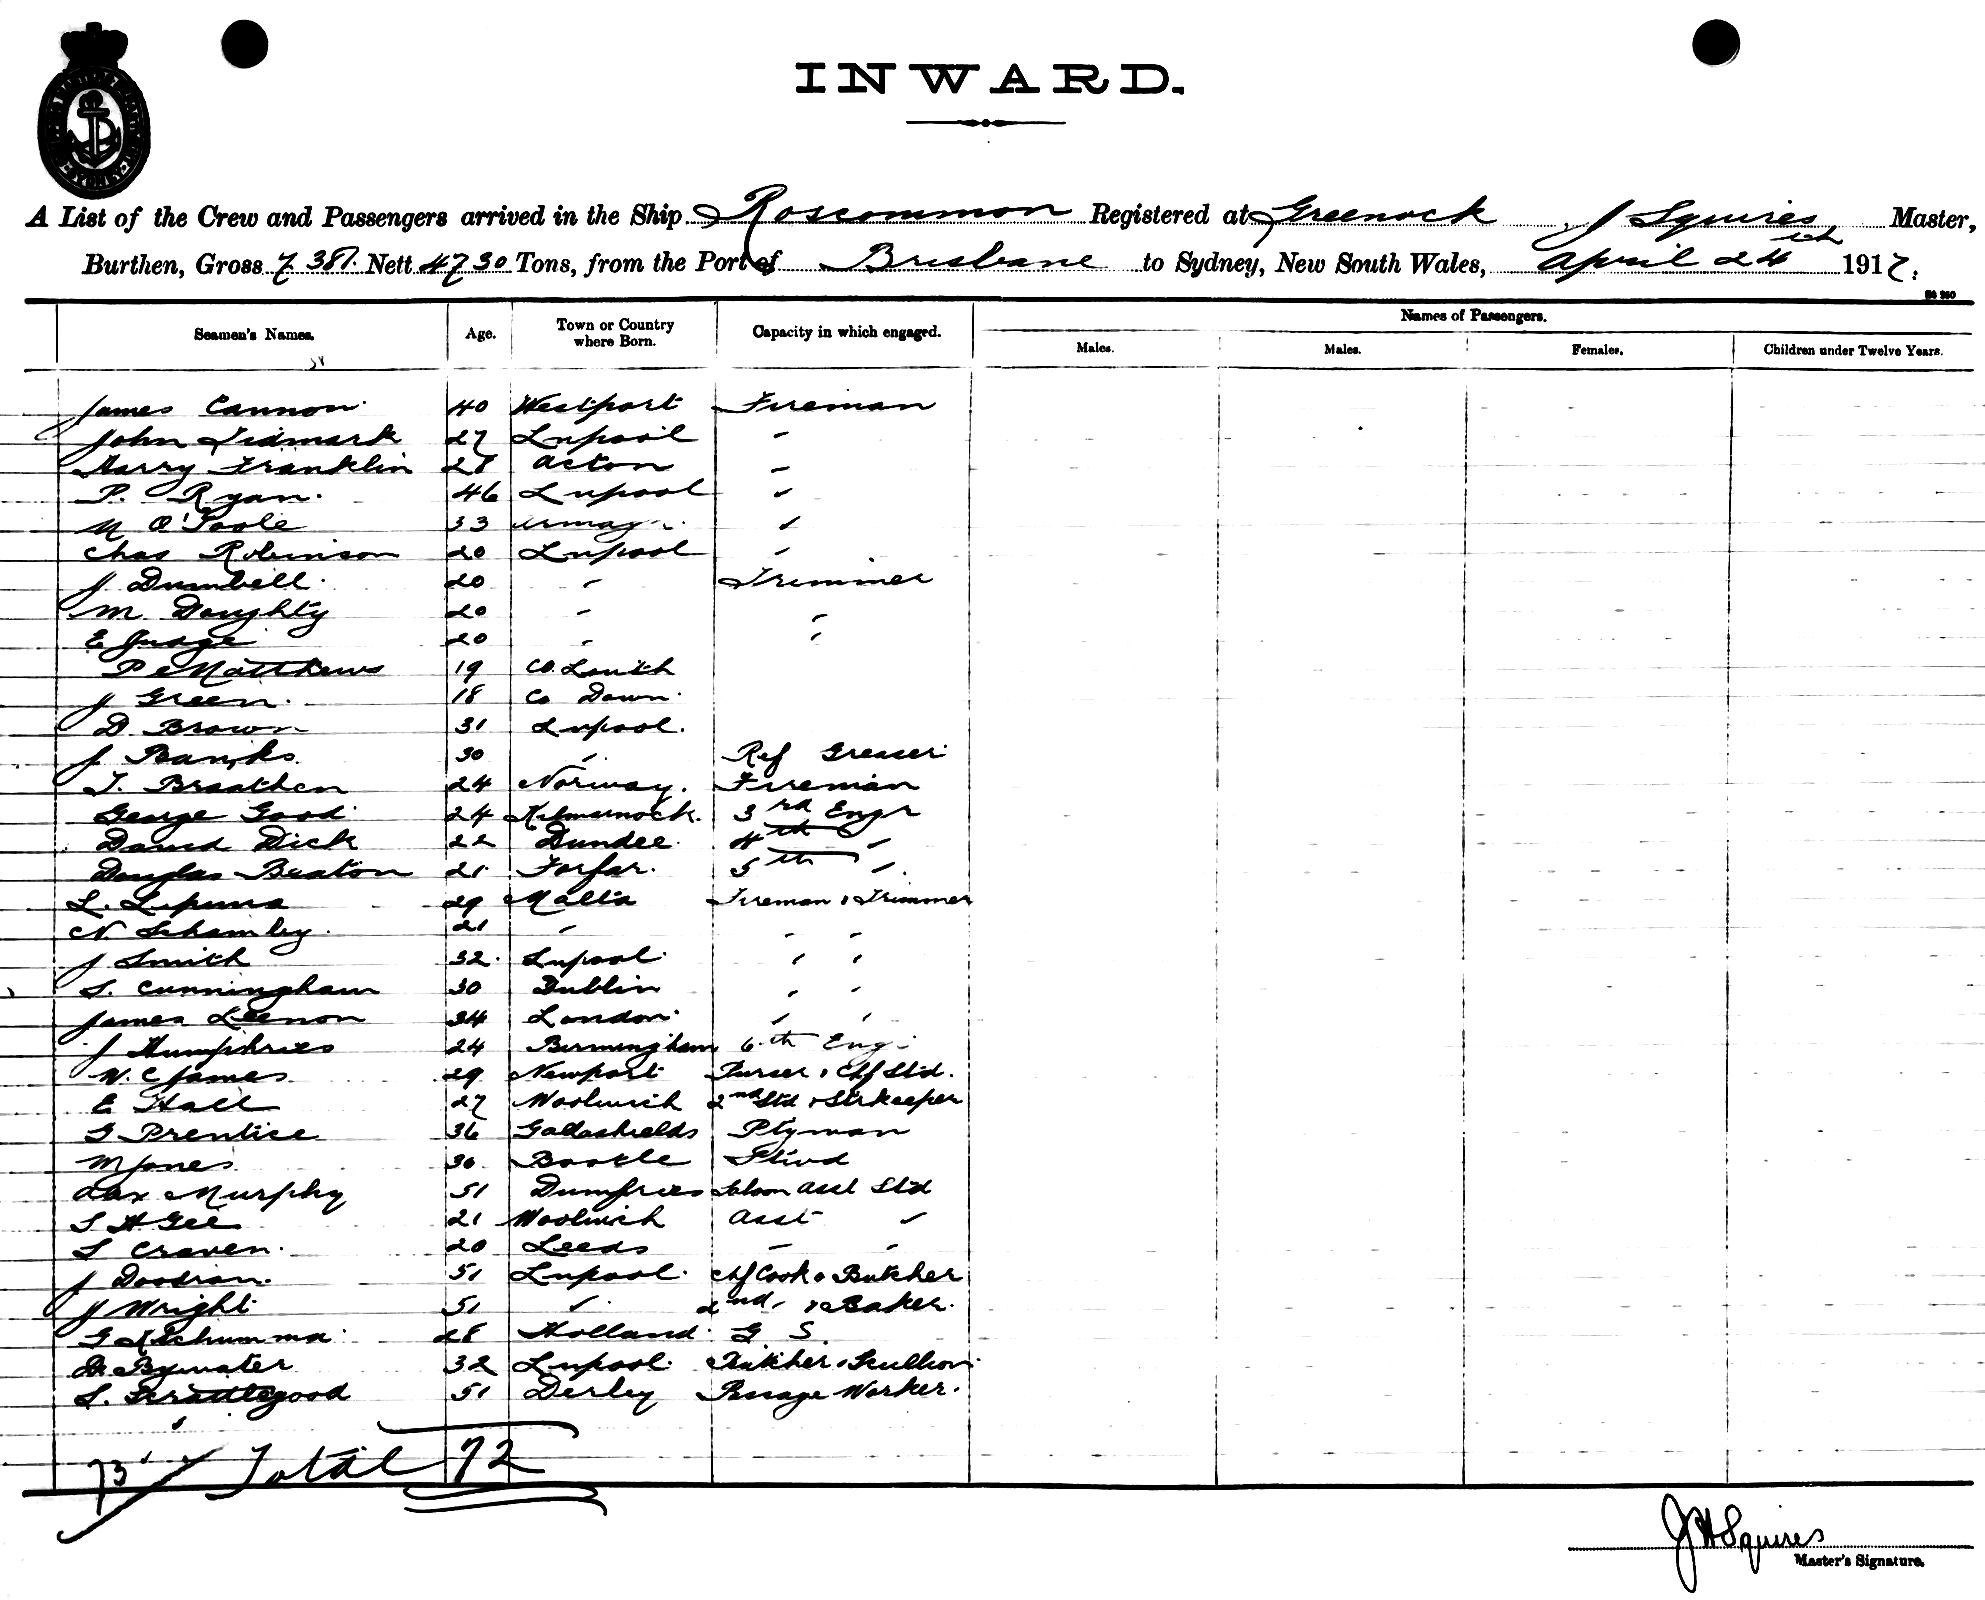 INWARD.
A List of the Crew and Passengers arrived in the Ship Roscommon Registered at Greenock J Squires Master,
Burthen, Gross 7381. Nett 4730 Tons, from the Port of Brisbane to Sydney, New South Wales, April 24th 1917.
Names of Passengers.
Seamen's Names. Age. Town or Country where Born. Capacity in which engaged. Males. Males. Females. Children under Twelve Years.
James Cannon 40 Westport Fireman
John Lidmark 27 Lupool "
Harry Franklin 28 Acton "
P. Ryan. 46 Lupool "
M O'Toole 33 "
Chas Robinson 20 Lupool "
J Dumbell 20 " Trimmer
M Doughty 20 " "
E Judge 20 " "
P Matthews 19 Co. Louth
J Green. 18 Co Down
D. Brown 31 Lupool.
J Banks 30 " Ref Greaser
T. Braathen 24 Norway. Fireman
George Good 24 Kilmarnock. 3rd Engr
David Dick 22 Dundee 4th "
Douglas Beaton 21 Forfar. 5th "
L. 29 Malta Fireman & Trimmer
N. 21 " " "
J Smith 32 Lupool " "
S. Cunningham 30 Dublin " "
James Leenon 34 London " "
J Humphries 24 Birmingham 6th Engr
W. C James 29 Newport Purser & Chf Std.
E Hall 27 Woolwich 2nd Std & Strkeeper
G Prentice 36 Gallashields Ptyman
M Jones 30 Bootle
Murphy 51 Dumfries Saloon Asst Std
S H Gee 21 Woolwich Asst "
S Craven. 20 Leeds " "
J Doodson. 51 Lupool Chf Cook & Butcher
J Wright 51 " 2nd " & Baker.
G 28 Holland G S.
D. Bywater 32 Lupool Butcher & Scullion
S. 51 Derby Passage Worker.
73 Total 72
J H Squires
Master's Signature.